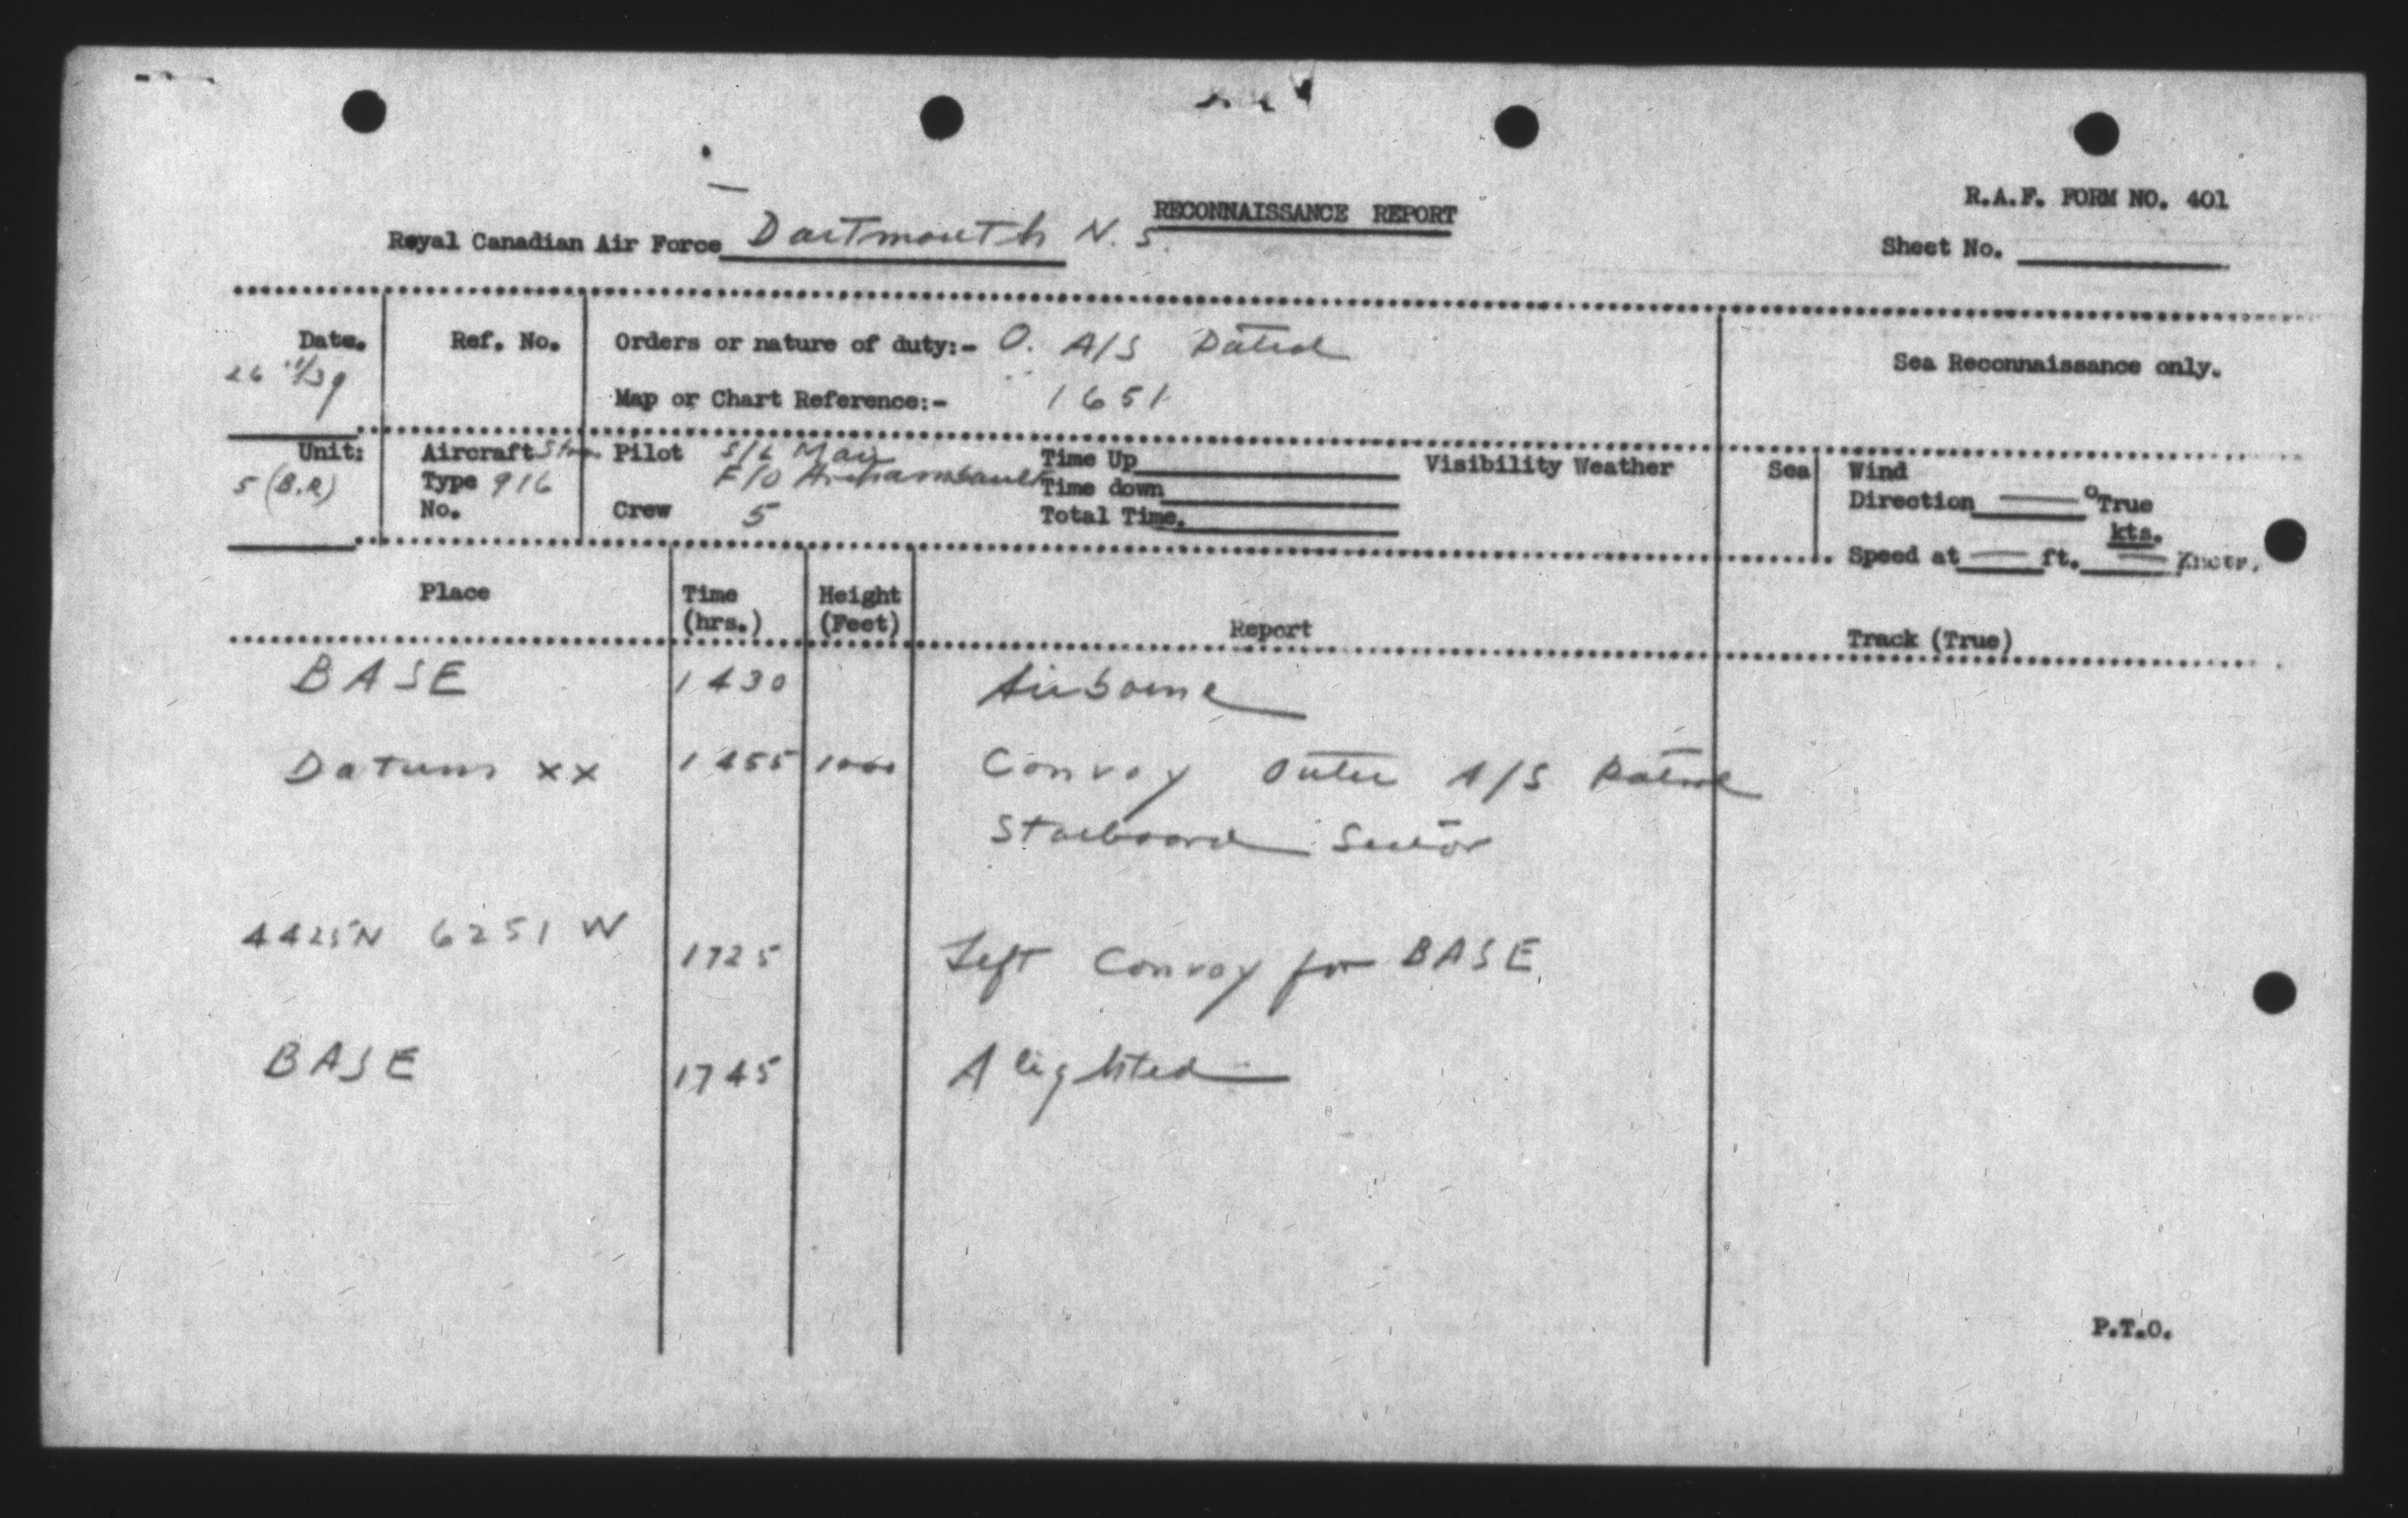 RECONNAISSANCE REPORT
R.A.F. FORM NO. 401
Royal Canadian Air Force Dartmouth N.S.
Sheet No.
Date. Ref. No. Orders or nature of duty:- O. A/S Patrol
26 11/39
Sea Reconnaissance only.
Map or Chart Reference:- 1651
Unit: Aircraft Stran Pilot S/L Mair Time Up Visibility Weather Sea Wind
5 (B.R) Type 916 F/O Archambault Time down Direction — °True
No. Crew 5 Total Time. kts.
Speed at — ft. — Knots.
Place Time (hrs.) Height (Feet) Report Track (True)
BASE 1430 Airborne
Datum xx 1455 1000 Convoy Outer A/S Patrol
Starboard Sector
4425N 6251 W 1725 Left Convoy for BASE.
BASE 1745 Alighted
P.T.O.